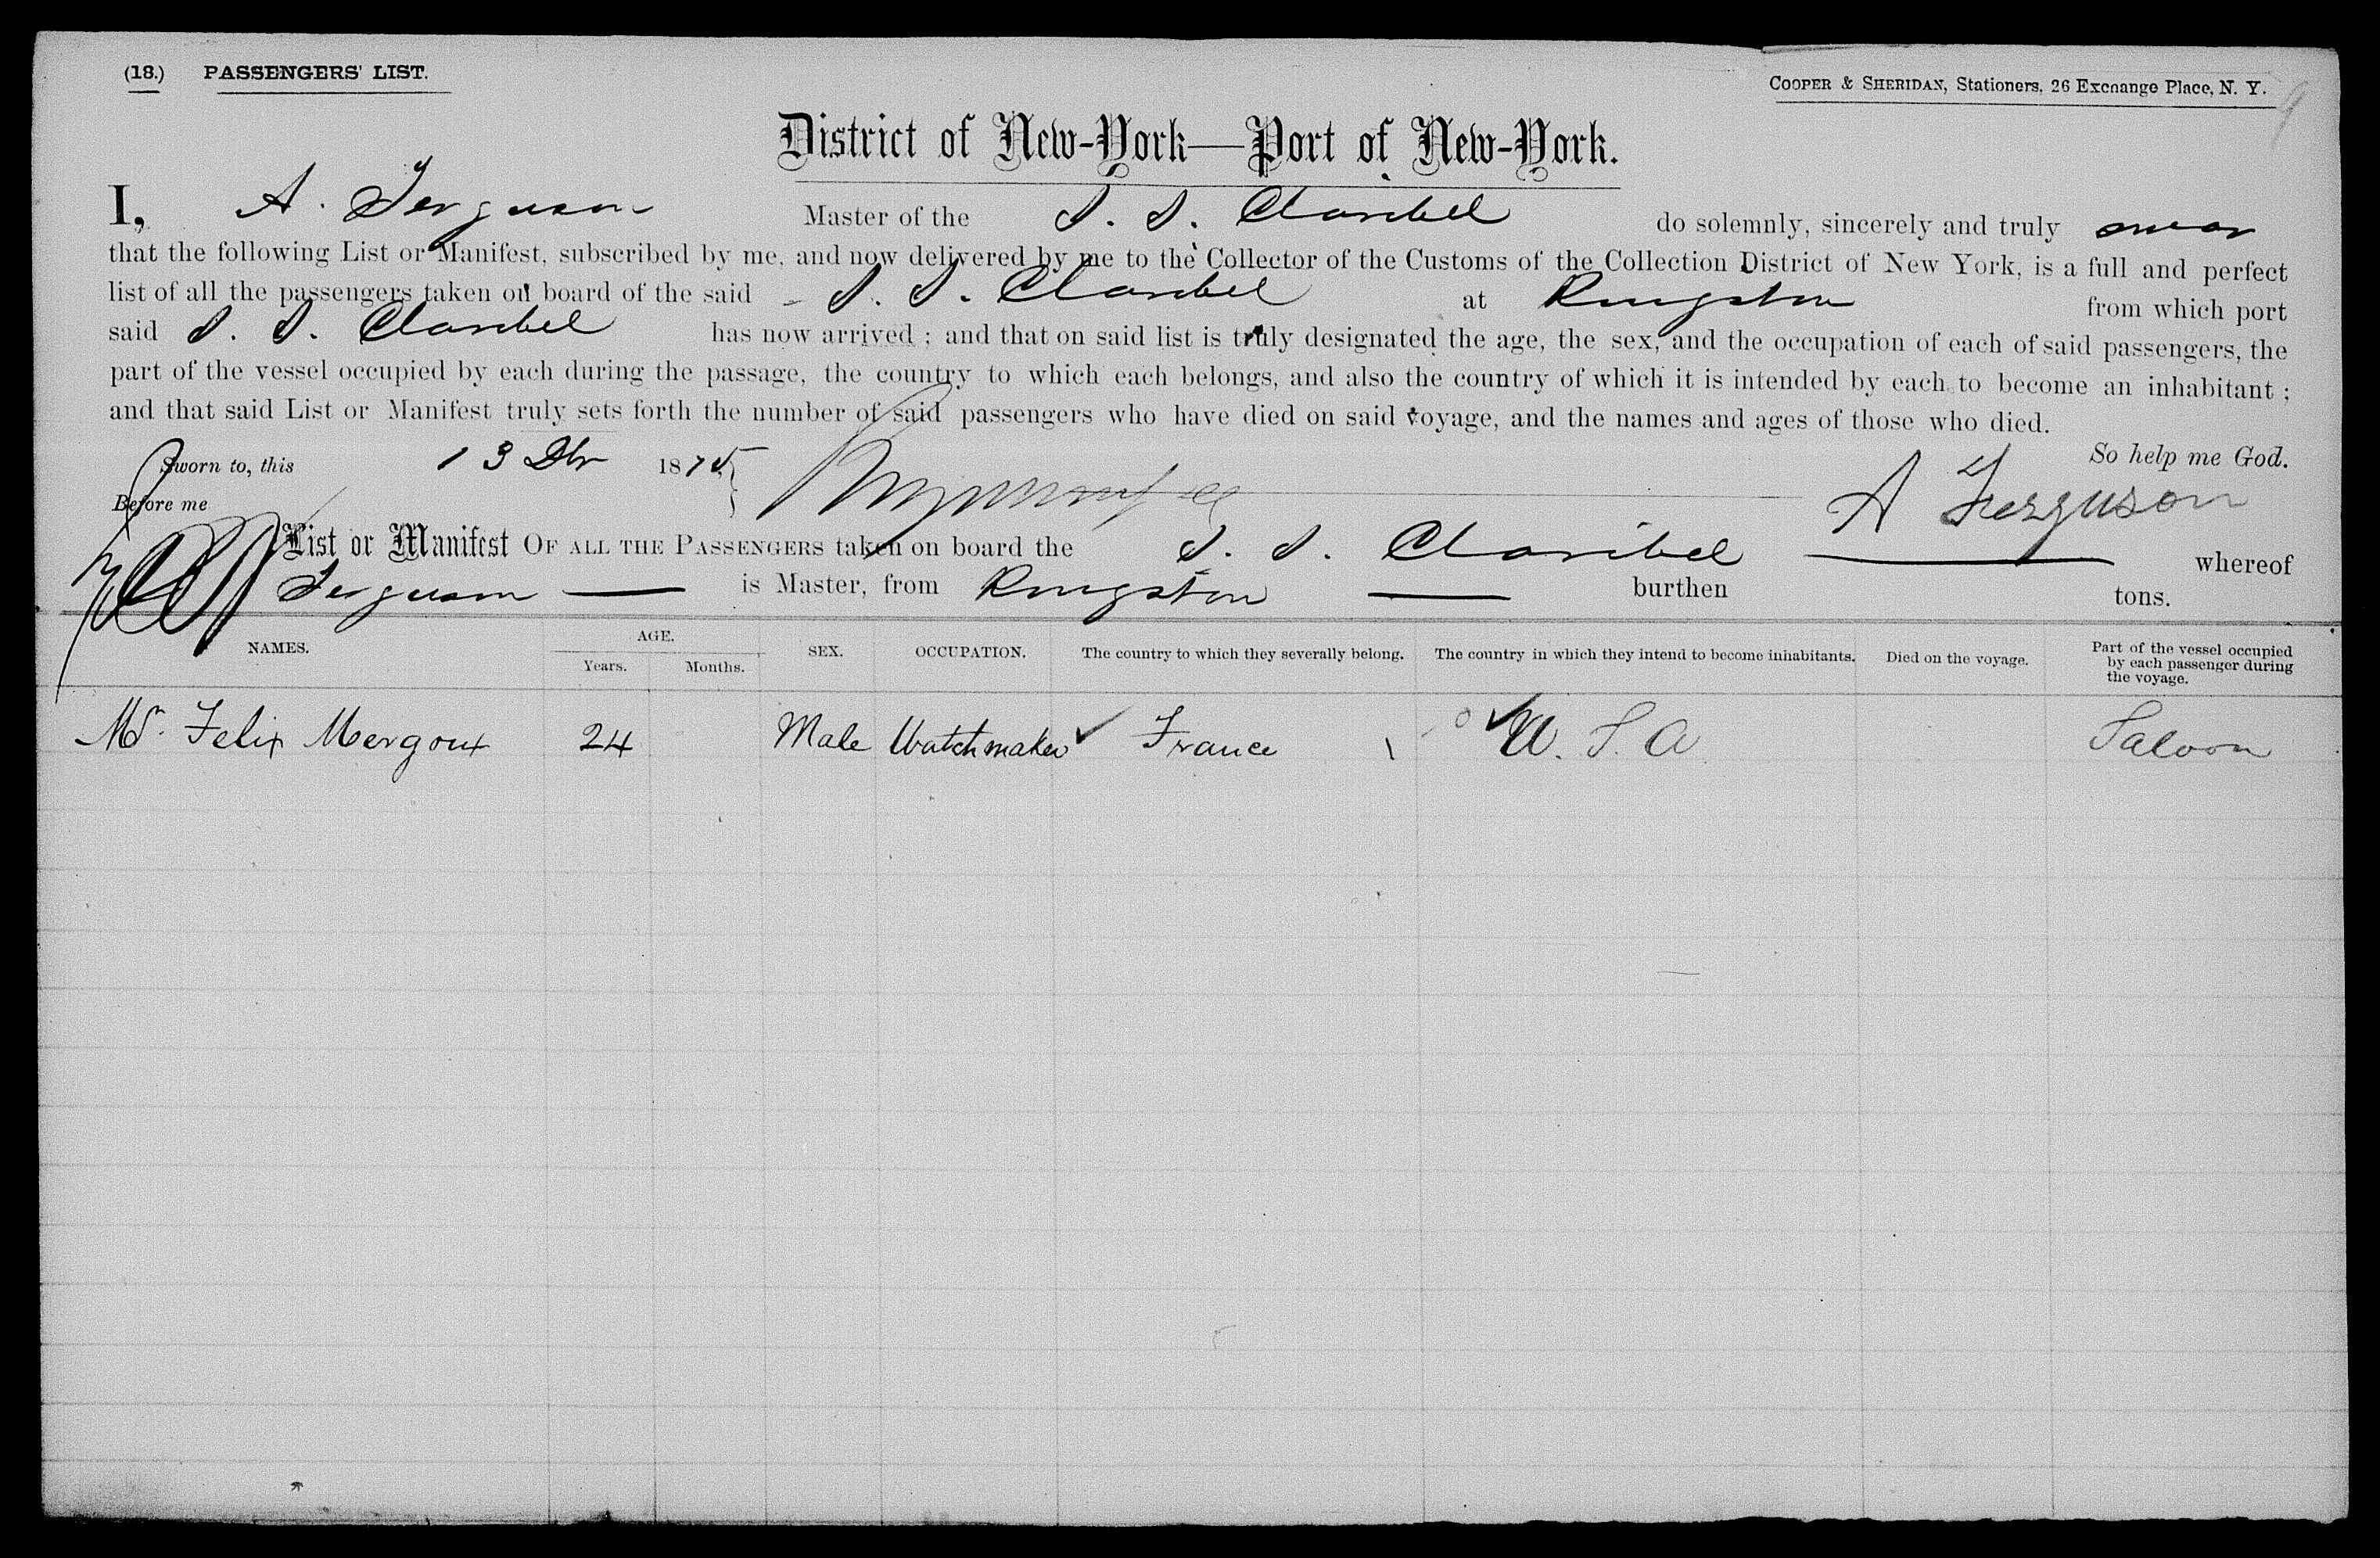 (18.) PASSENGERS' LIST.
COOPER & SHERIDAN, Stationers, 26 Exchange Place, N. Y.
9
District of New-York—Port of New-York.
I, A. Ferguson Master of the S. S. Claribel do solemnly, sincerely and truly swear
that the following List or Manifest, subscribed by me, and now delivered by me to the Collector of the Customs of the Collection District of New York, is a full and perfect
list of all the passengers taken on board of the said S. S. Claribel at Kingston from which port
said S. S. Claribel has now arrived ; and that on said list is truly designated the age, the sex, and the occupation of each of said passengers, the
part of the vessel occupied by each during the passage, the country to which each belongs, and also the country of which it is intended by each to become an inhabitant ;
and that said List or Manifest truly sets forth the number of said passengers who have died on said voyage, and the names and ages of those who died.
So help me God.
Sworn to, this 13 Dbr 1875
Before me
A Ferguson
List or Manifest OF ALL THE PASSENGERS taken on board the S. S. Claribel — whereof
Ferguson — is Master, from Kingston — burthen tons.
NAMES. AGE. Years. Months. SEX. OCCUPATION. The country to which they severally belong. The country in which they intend to become inhabitants. Died on the voyage. Part of the vessel occupied by each passenger during the voyage.
Mr. Felix Mergoux 24 Male Watchmaker France U. S. A Saloon